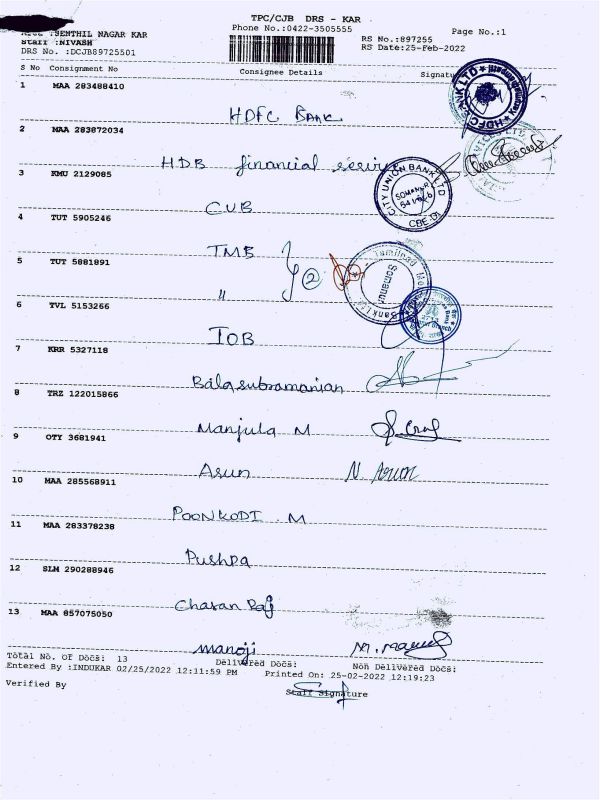 TPC/CJB DRS - KAR
Phone No.:0422-3505555
Page No.:1
Area :SENTHIL NAGAR KAR
Staff :NIVASH
DRS No. :DCJB89725501
RS No.:897255
RS Date:25-Feb-2022
S No Consignment No Consignee Details Signatu
1 MAA 283488410
HDFC Bank
2 MAA 283872034
HDB financial service
3 KMU 2129085
CUB
4 TUT 5905246
TMB
5 TUT 5881891
"
6 TVL 5153266
IOB
7 KRR 5327118
Balasubramanian
8 TRZ 122015866
Manjula M
9 OTY 3681941
Arun N. Arun
10 MAA 285568911
POONKODI. M
11 MAA 283378238
Pushpa
12 SLM 290288946
Charan Raj
13 MAA 857075050
manoji
HDFC BANK LTD
CITY UNION BANK LTD
CBE-01
Total No. Of Docs: 13 Delivered Docs: Non Delivered Docs:
Entered By :INDUKAR 02/25/2022 12:11:59 PM Printed On: 25-02-2022 12:19:23
Verified By Staff Signature